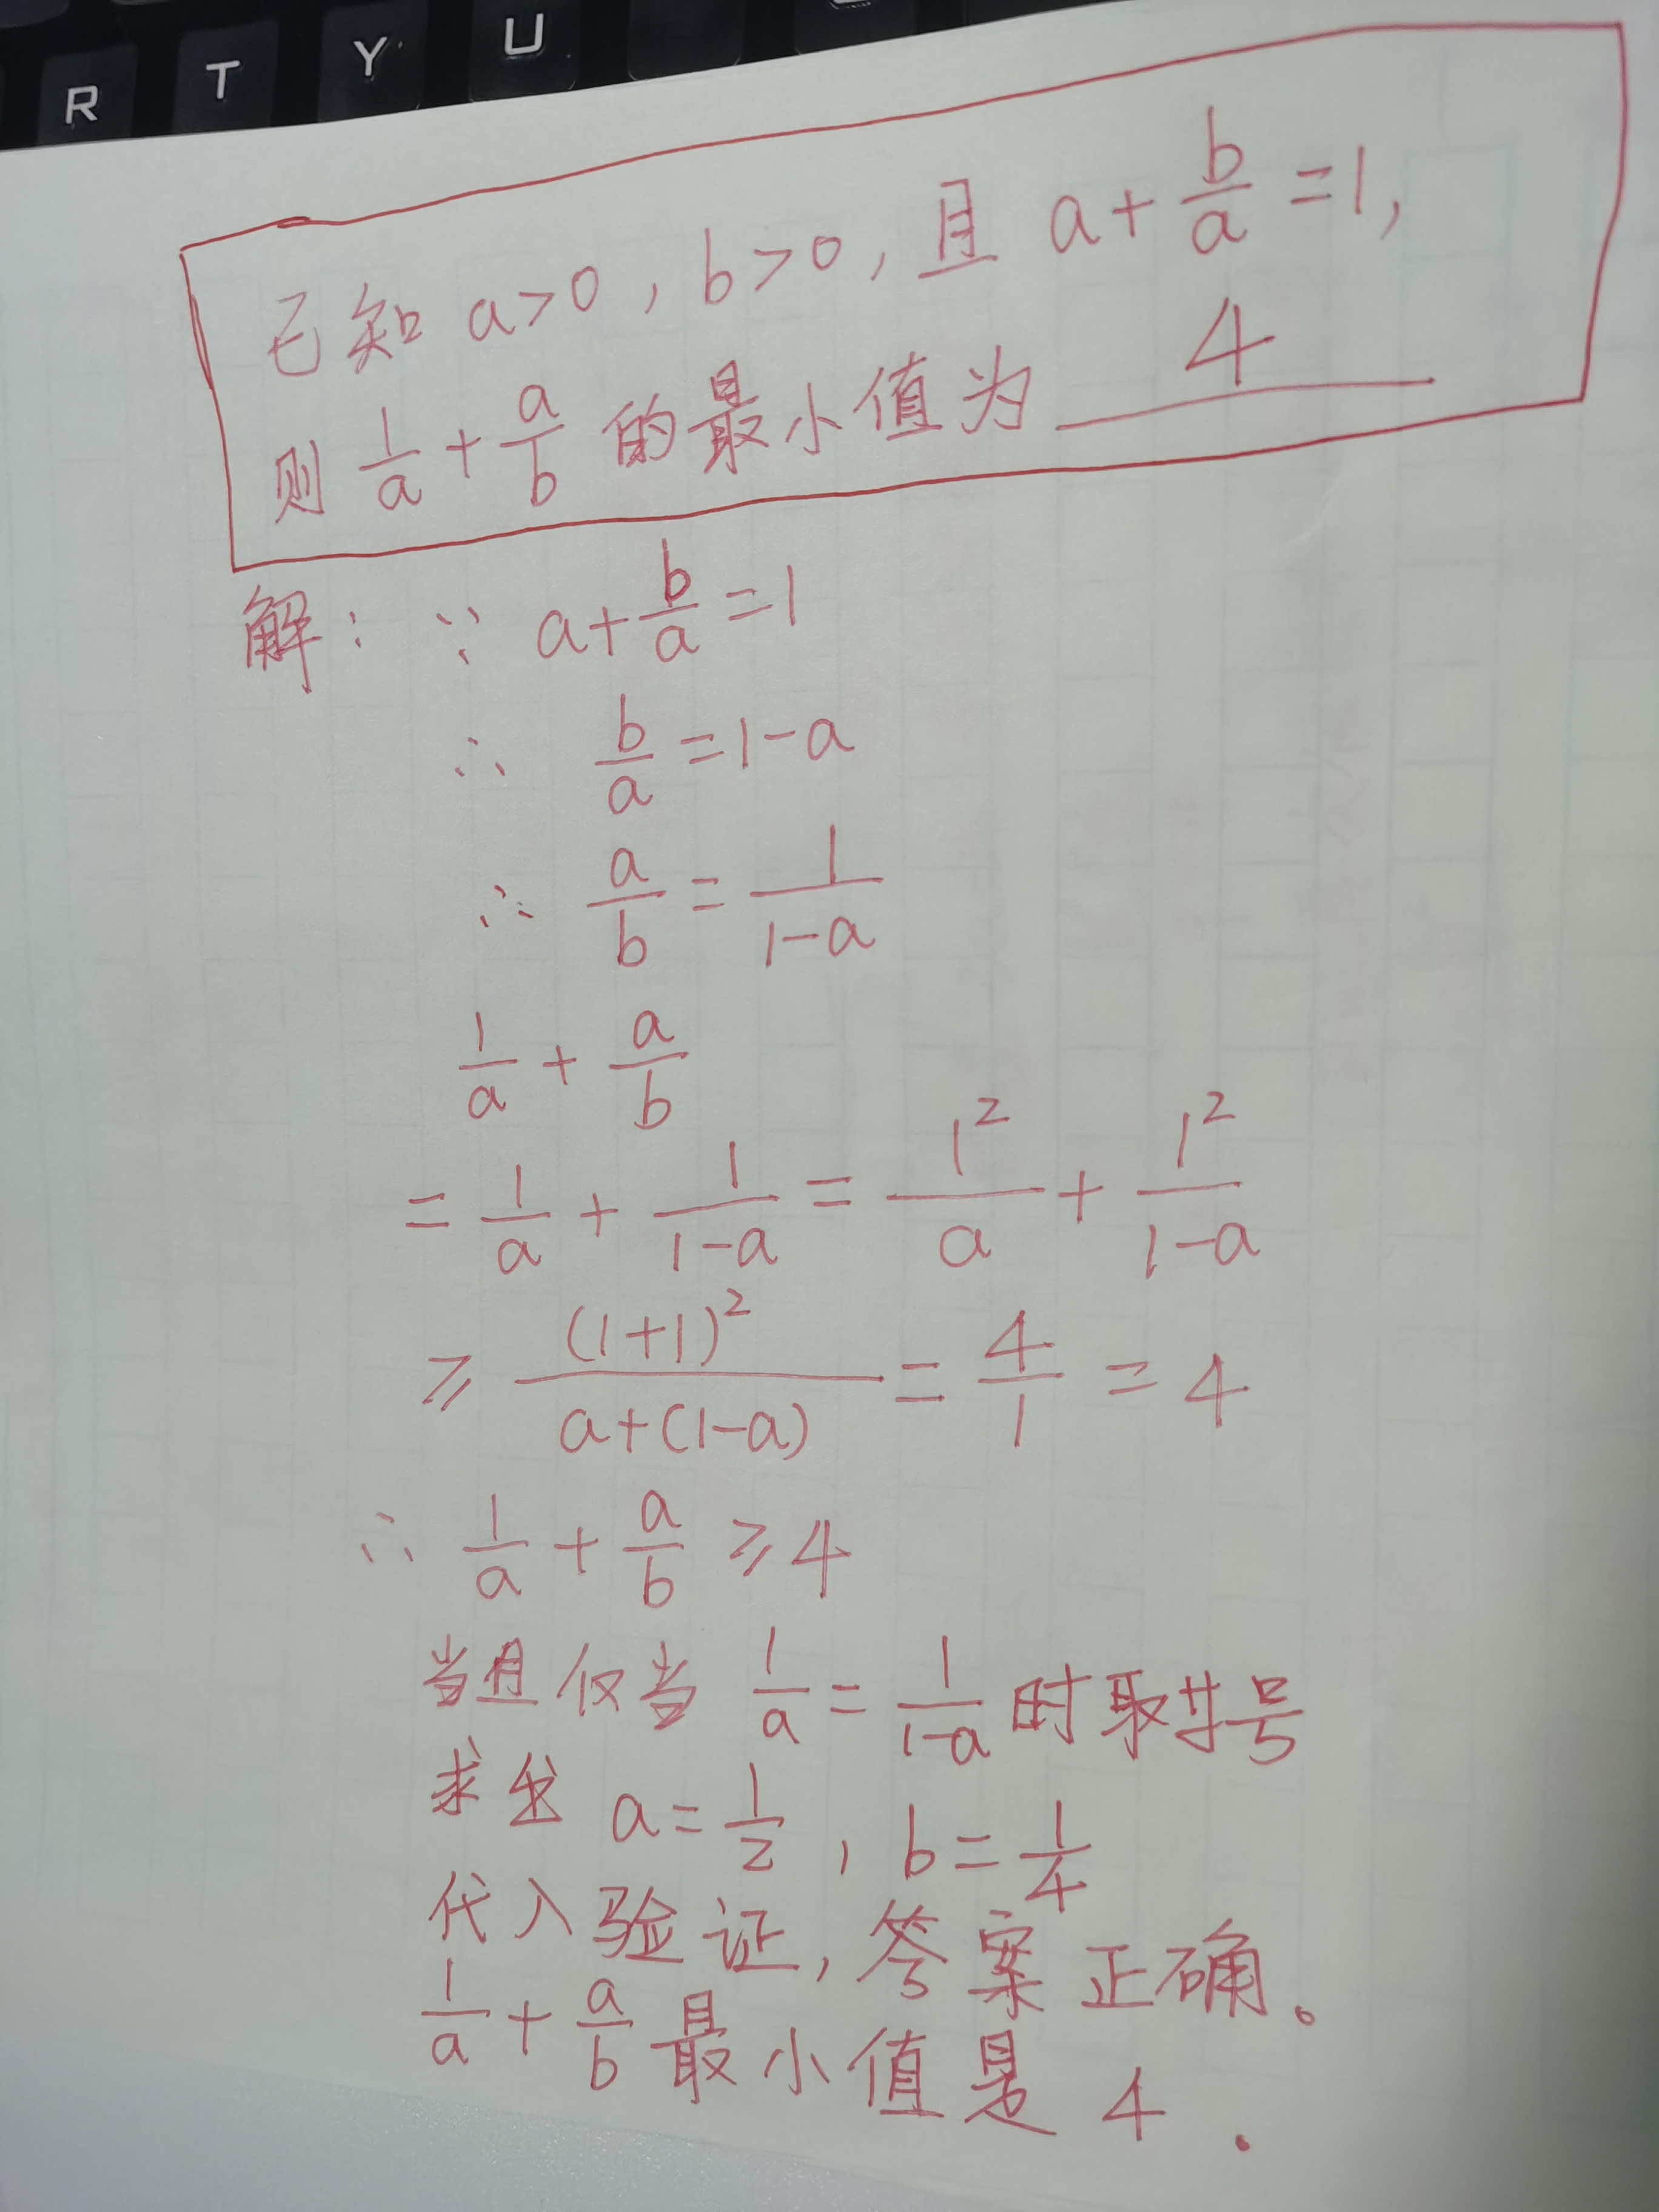 R T Y U
已知 a>0, b>0, 且 a+\frac{b}{a}=1,
则 \frac{1}{a}+\frac{a}{b} 的最小值为 4
解: ∵ a+\frac{b}{a}=1
∴ \frac{b}{a}=1-a
∴ \frac{a}{b}=\frac{1}{1-a}
\frac{1}{a}+\frac{a}{b}
=\frac{1}{a}+\frac{1}{1-a}=\frac{1^2}{a}+\frac{1^2}{1-a}
≥\frac{(1+1)^2}{a+(1-a)}=\frac{4}{1}=4
∴ \frac{1}{a}+\frac{a}{b}≥4
当且仅当 \frac{1}{a}=\frac{1}{1-a} 时取号
求出 a=\frac{1}{2}, b=\frac{1}{4}
代入验证, 答案正确。
\frac{1}{a}+\frac{a}{b} 最小值是 4.